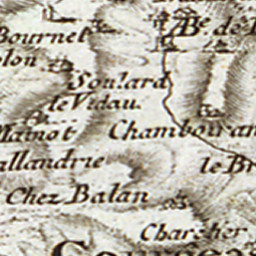 Bournet
Bᵉ. de
Soulard
le Vidau.
Mainot
Chambouran
allandrie
le Br
Chez Balan
Charcher